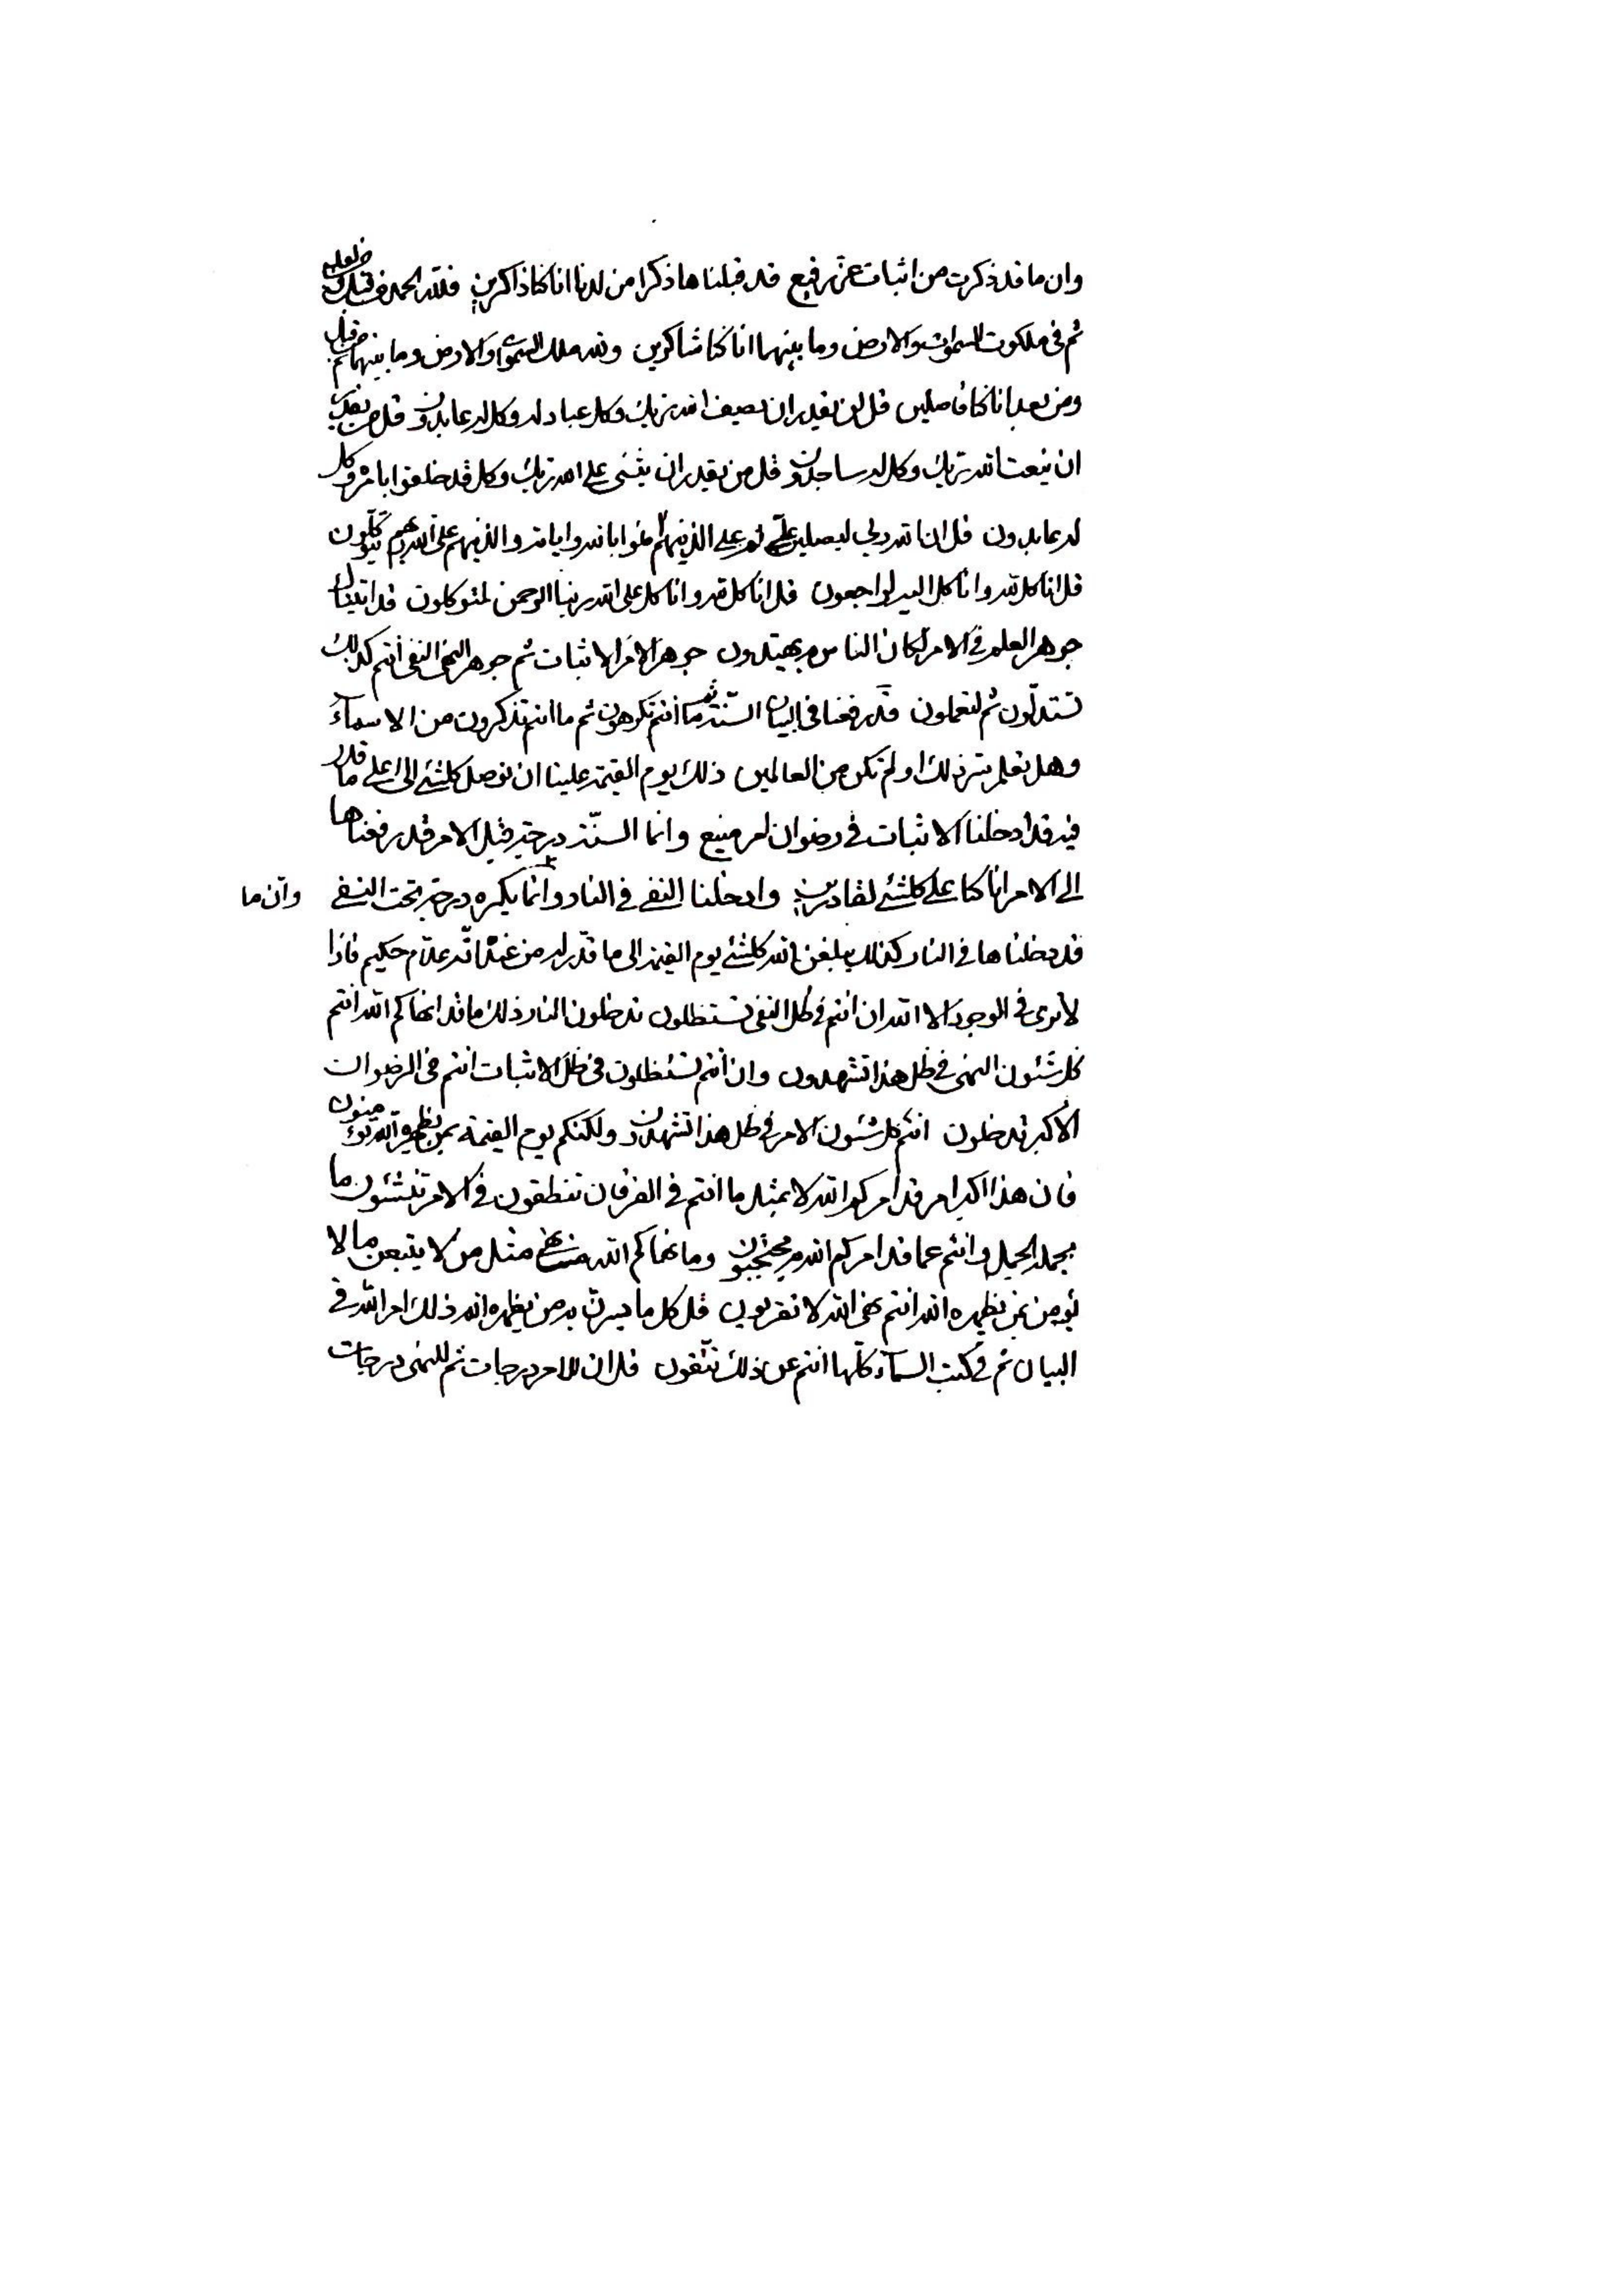 وان ما قد ذكرت من اثبات عز رفيع قد قبلناها ذكرا من لدنا انا كنا ذاكرين فلله الحمد من قبل ومن بعد
ثم في ملكوت السموات والارض وما بينهما انا كنا شاكرين ولله ملك السموات والارض وما بينهما من قبل ثم
ومن بعد انا كنا فاصلين قل لن يقدر ان يصف الله ربك وكل عباد له وكل له عابدون قل من يقدر
ان ينعت الله ربك وكل له ساجدون قل من يقدر ان يثنى على الله ربك وكل قد خلقوا بامره وكل
له عابدون قل ان الله ربي ليصلين على الذينهم امنوا بالله واياته والذينهم على الله ربهم يتوكلون
قل انا كل لله وانا كل اليه لراجعون قل انا كل لله وانا كل على الله ربنا الرحمن لمتوكلون قد اتيناك
جوهر العلم في الامر لكان الناس به يهتدون جوهر الامر الاثبات ثم جوهر النهى النفى انتم كذلك
تستدلون ثم لتعملون قد رفعنا في البيان السنة ثم ما انتم تكرهون ثم ما انتم تذكرون من الاسماء
وهل تعلم سر ذلك او لم تكن من العالمين ذلك يوم القيمة علينا ان نوصل كلشئ الى اعلى ما قدر
فيه قد ادخلنا الاثبات في رضوان منيع وانما السنة درجة قبل الامر قد رفعناها
الى الامر انا كنا على كلشئ لقادرين وادخلنا النفى في النار وانما يكره درجة تحت النفى وان ما
قد دخلناها في النار كذلك يبلغن الله كلشئ يوم القيمة الى ما قدر له من عنده انه علام حكيم فاذا
لا ترى في الوجود الا الله ان انتم في ظل النفى تستظلون تدخلون النار ذلك ما قد انهاكم الله انتم
كل شئون النهى في ظل هذا تشهدون وان انتم تستظلون في ظل الاثبات انتم في الرضوان
الاكبر تدخلون انتم كل شئون الامر في ظل هذا تشهدون ولكنكم يوم القيمة بمن يظهره الله تؤمنون
فان هذا اكبر امر قد امركم الله لا بمثل ما انتم في الفرقان تنطقون في الامر تنشئون ما
بجملة الجمل وانتم عما قد امركم الله به محتجبون وما نهاكم الله من نهى مثل من لا يتبعن ما لا
يؤمن بمن يظهره الله انتم نهى الله لا تقربون قل كل ما يسرن به من يظهره الله ذلك امر الله في
البيان ثم في كتب السماء كلها انتم عن ذلك تتقون قل ان للامر درجات ثم للنهى درجات